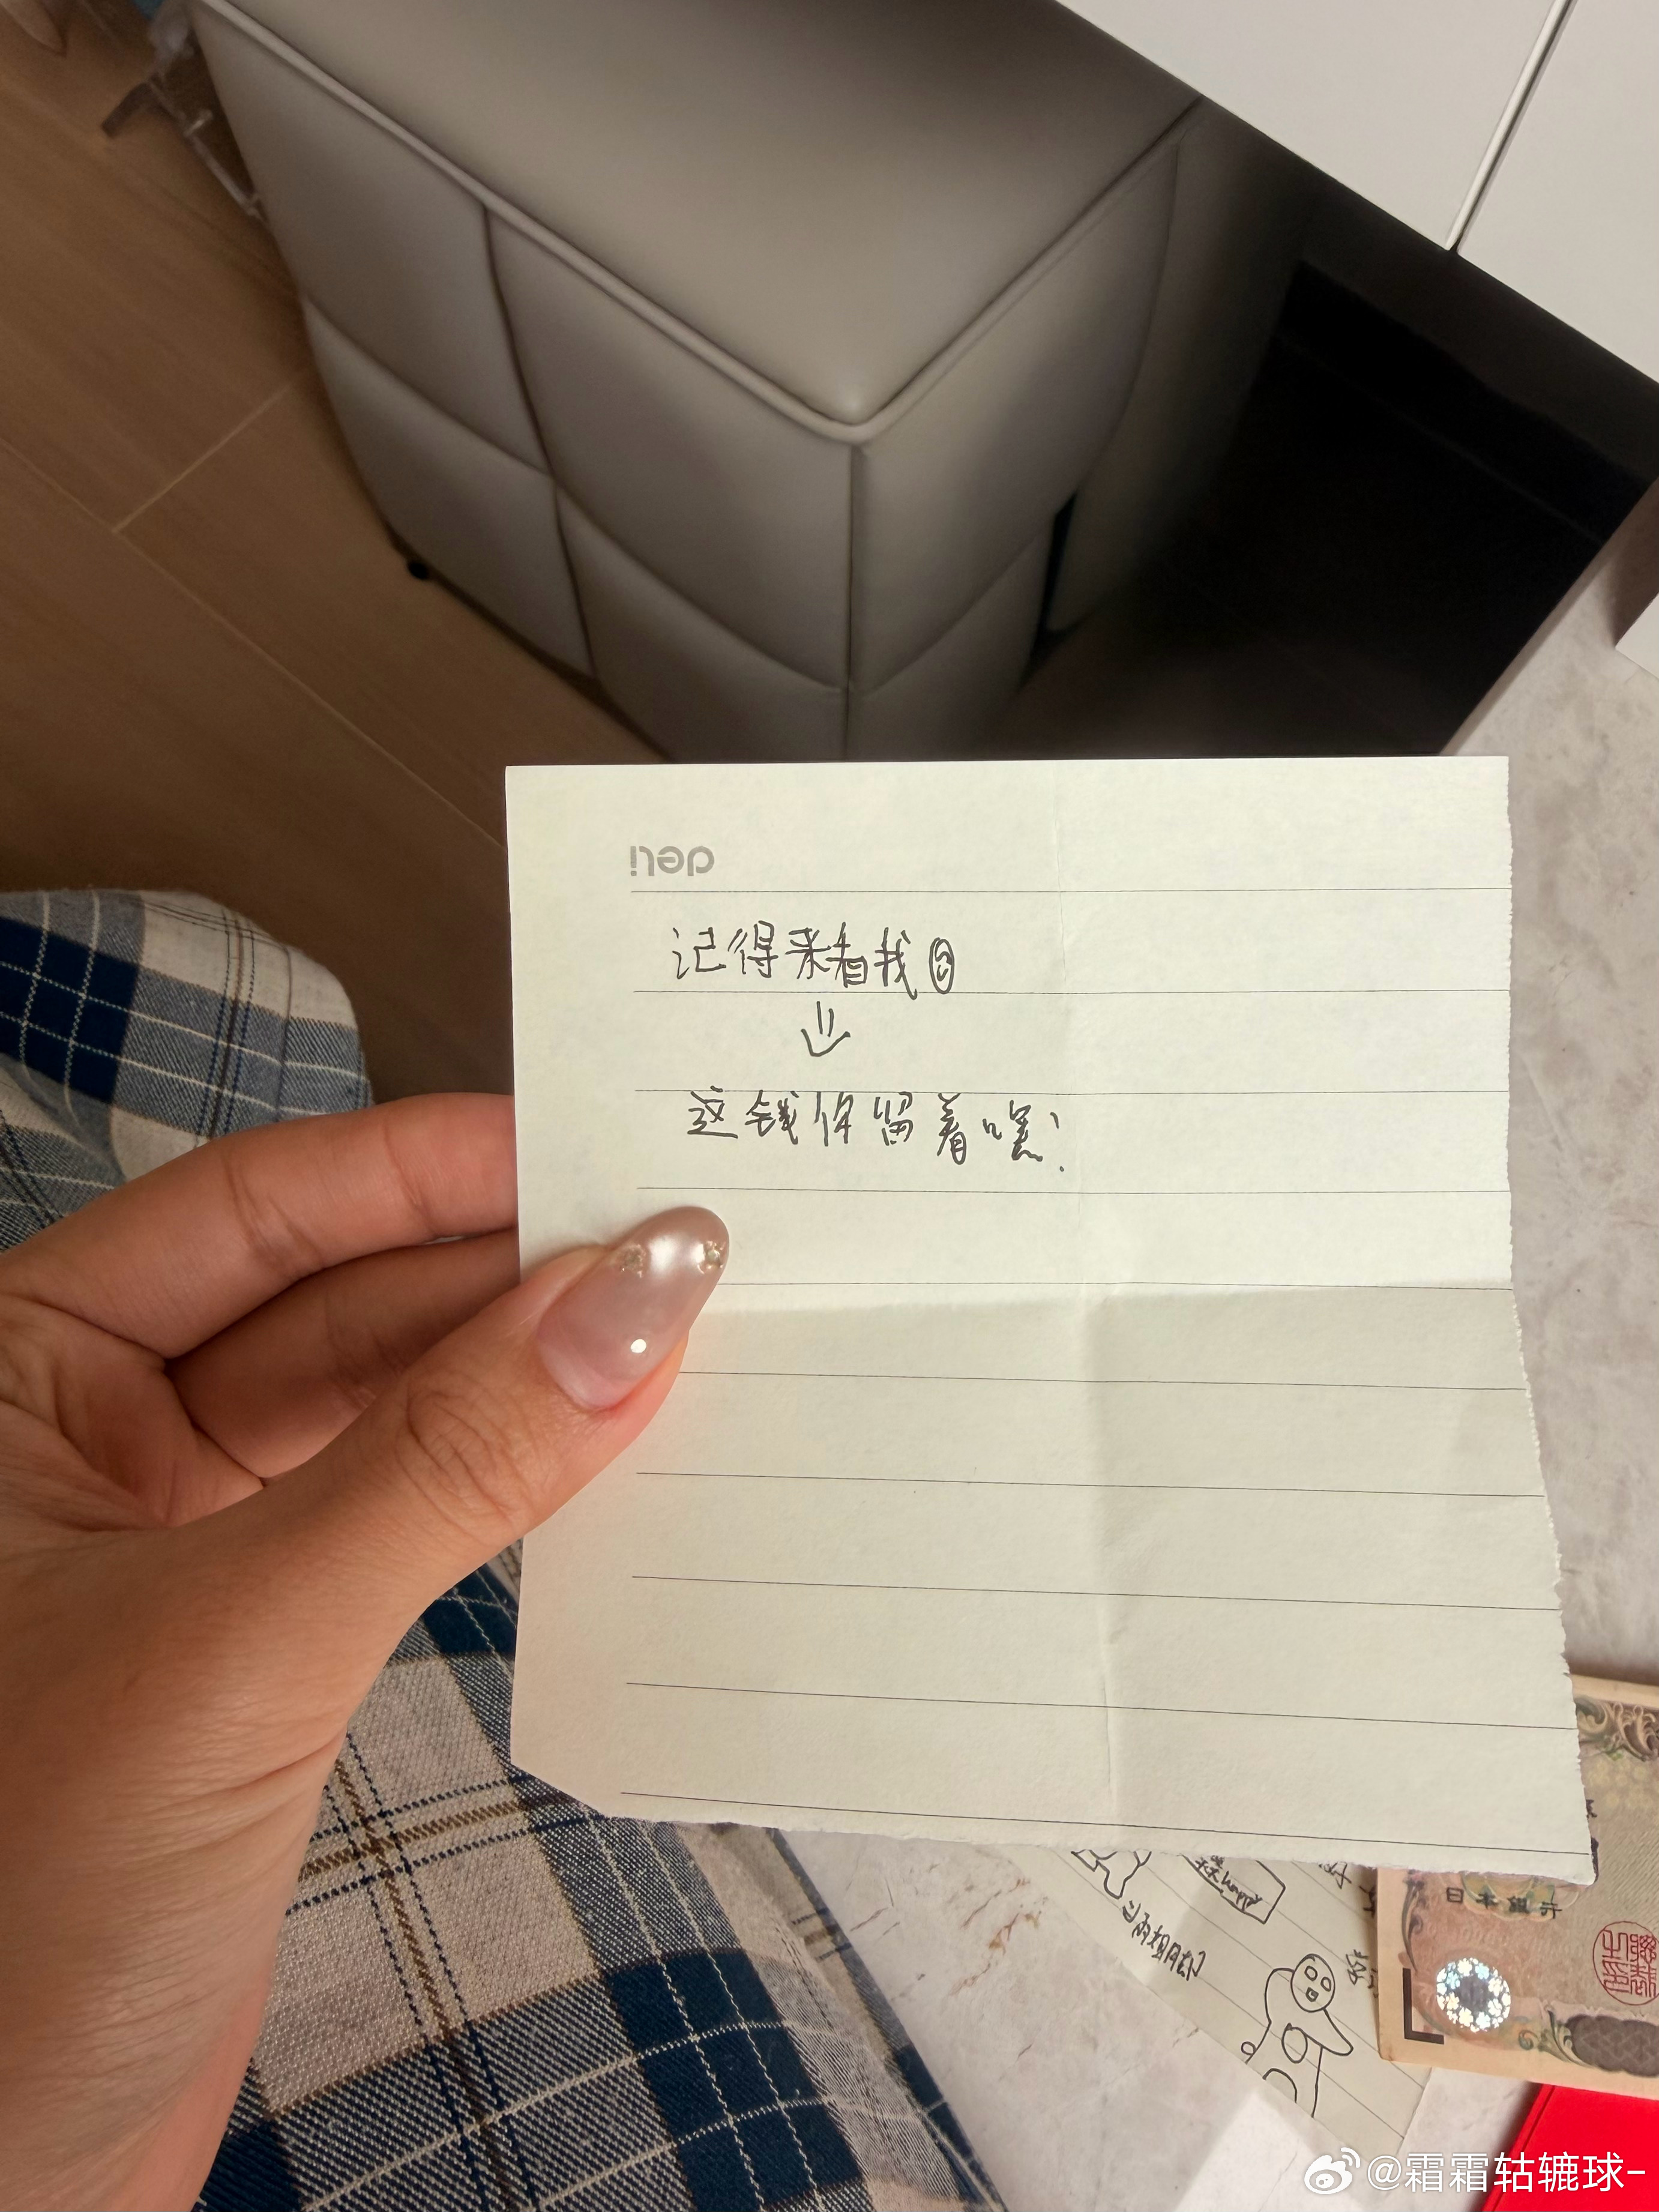 deli
记得来看我
这钱你留着嘿!
happy
日本銀行
@霜霜轱辘球-